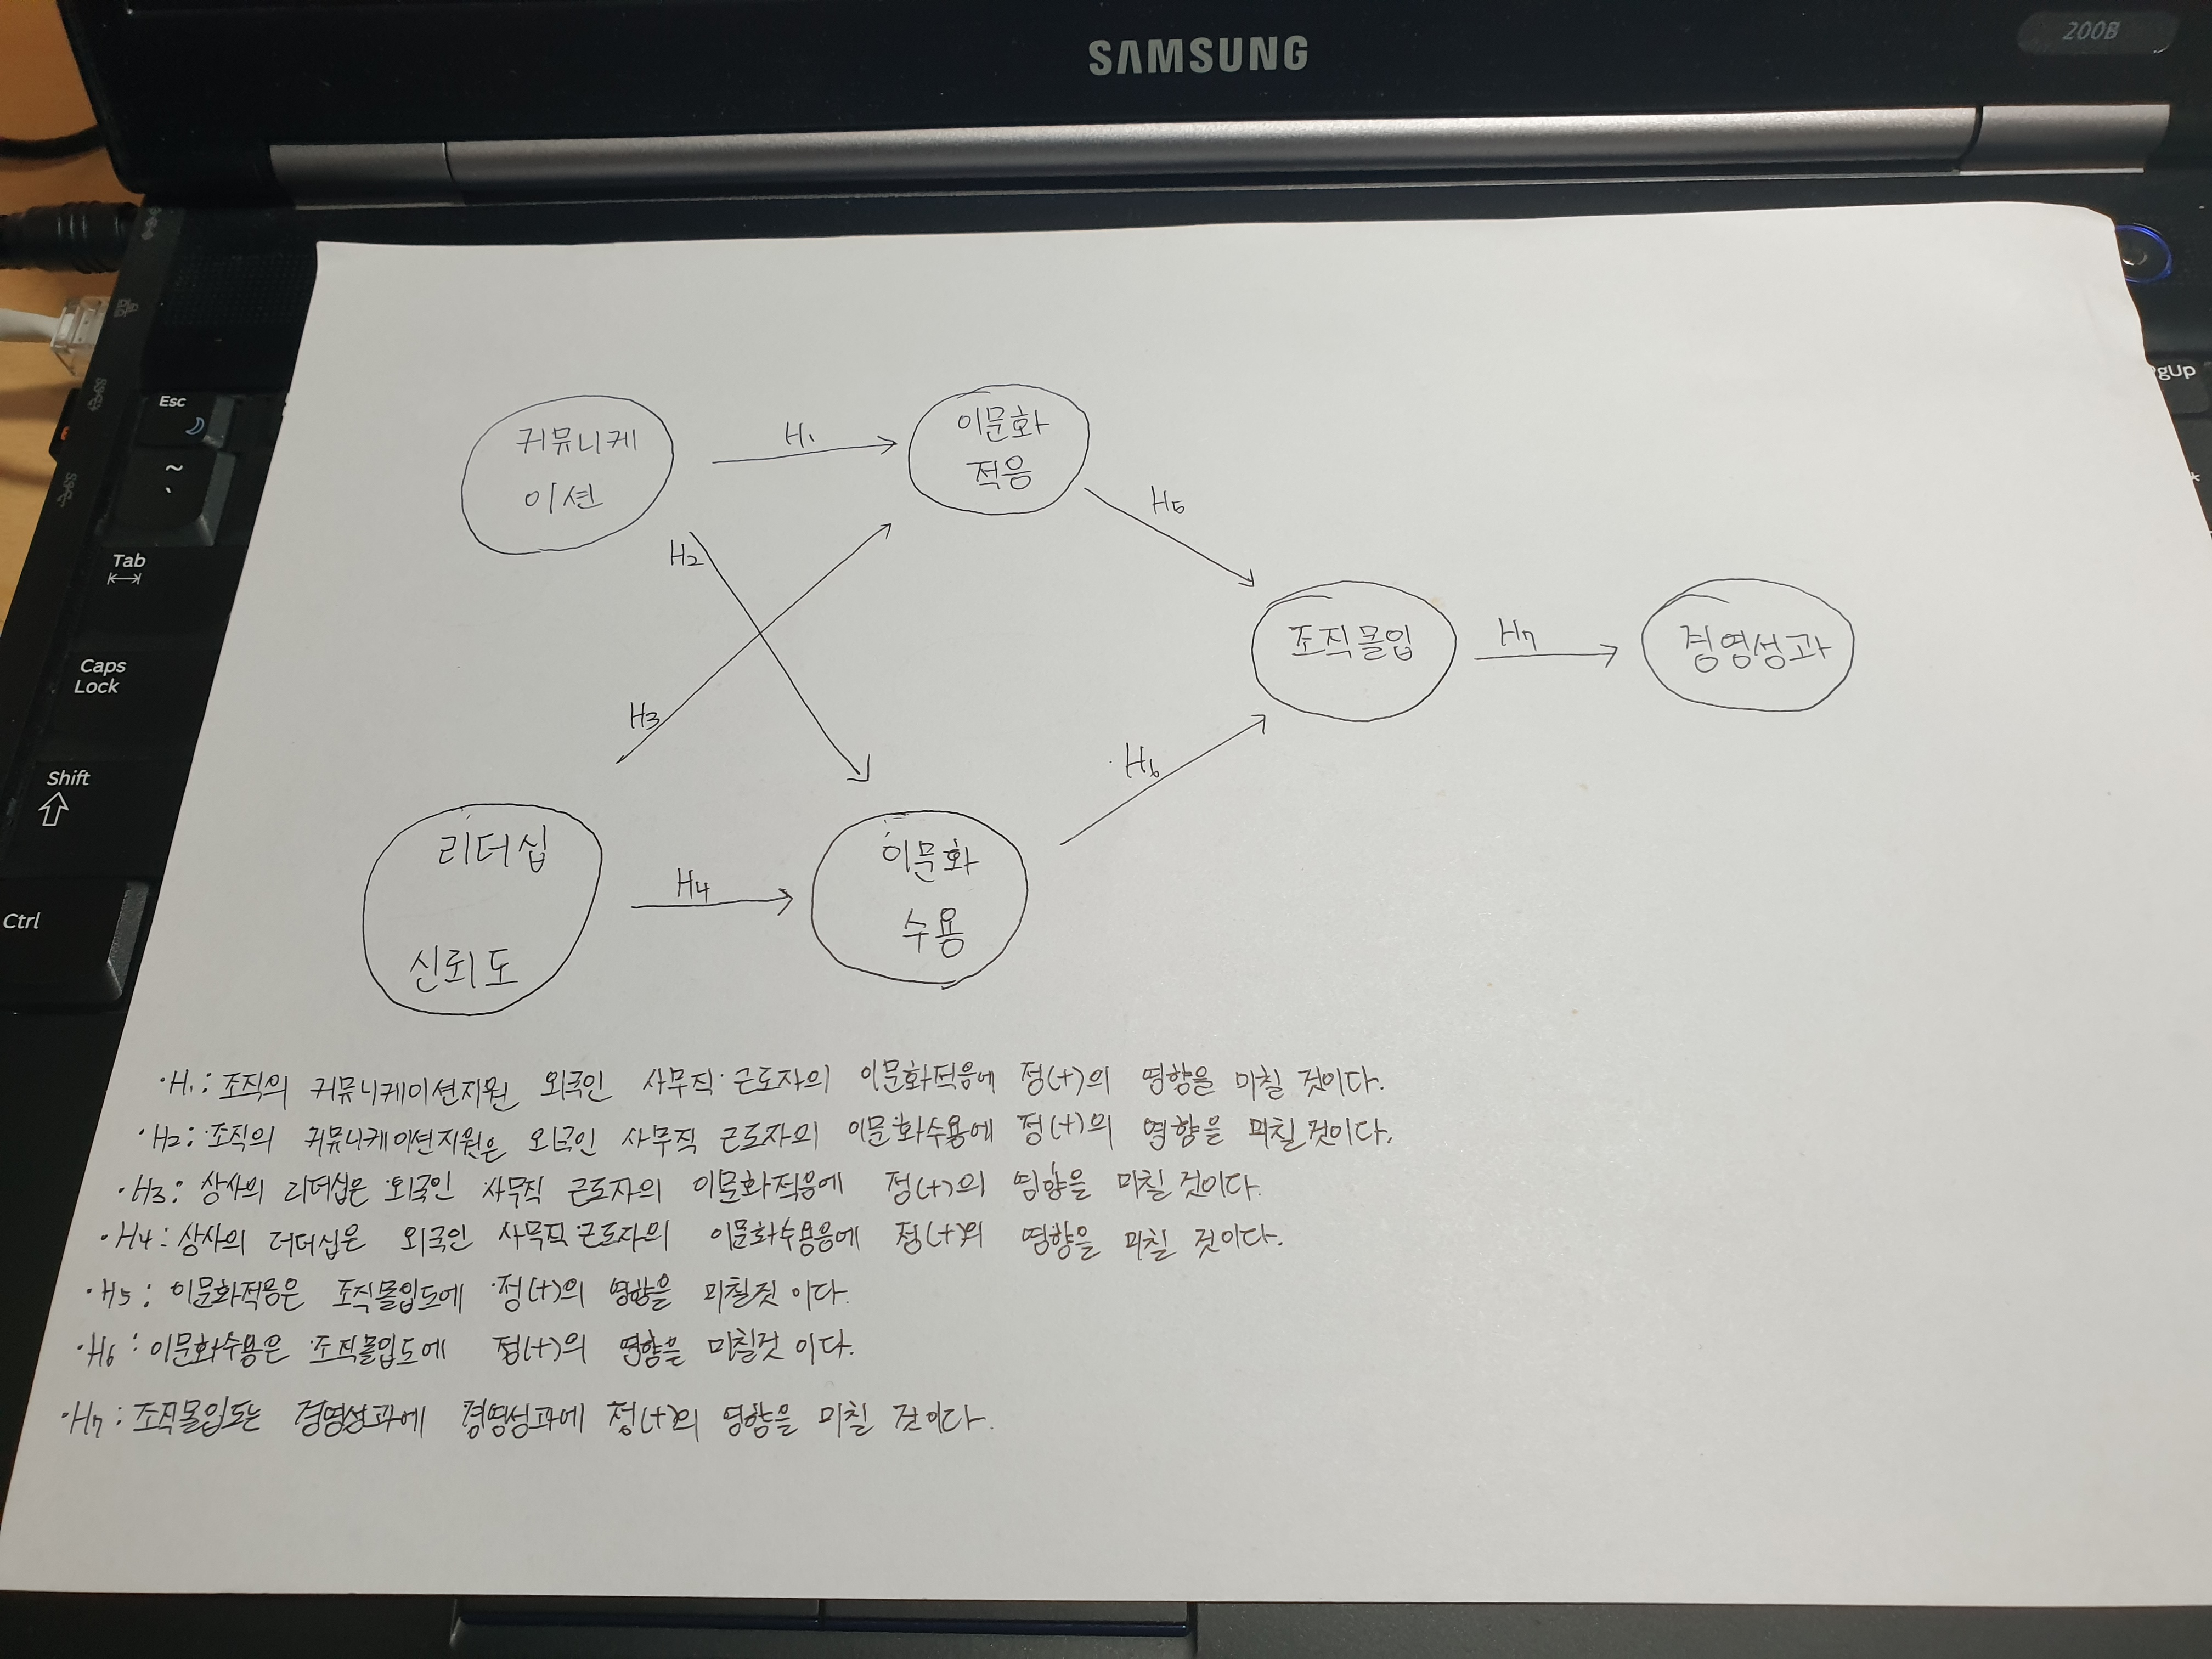 SAMSUNG
200B
Esc
~
Tab
Caps
Lock
Shift
Ctrl
gUp
커뮤니케
이션
H1
이문화
적응
H2
H5
H3
조직몰입
H7
경영성과
H6
리더십
신뢰도
H4
이문화
수용
·H1: 조직의 커뮤니케이션지원 외국인 사무직 근로자의 이문화적응에 정(+)의 영향을 미칠 것이다.
·H2: 조직의 커뮤니케이션지원은 외국인 사무직 근로자의 이문화수용에 정(+)의 영향을 미칠것이다.
·H3: 상사의 리더십은 외국인 사무직 근로자의 이문화적응에 정(+)의 영향을 미칠 것이다.
·H4: 상사의 더더십은 외국인 사무직 근로자의 이문화수용응에 정(+)의 영향을 미칠 것이다.
·H5: 이문화적응은 조직몰입도에 정(+)의 영향을 미칠것 이다.
·H6: 이문화수용은 조직몰입도에 정(+)의 영향을 미칠것 이다.
·H7: 조직몰입도는 경영성과에 경영성과에 정(+)의 영향을 미칠 것이다.